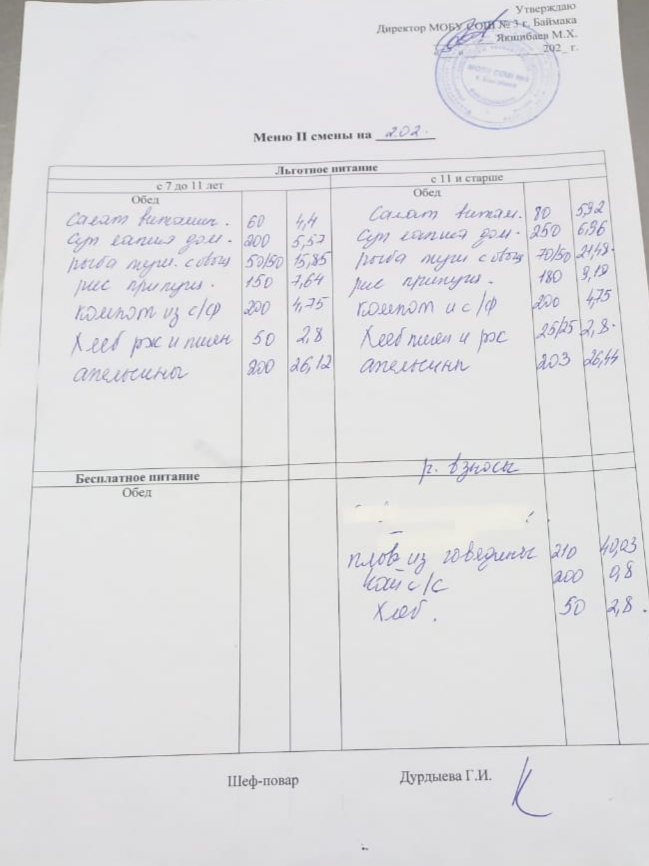 Утверждаю
Директор МОБУ СОШ № 3 г. Баймака
Якшибаев М.Х.
202_ г.
МОБУ СОШ №3
Меню II смены на 2.02.
Льготное питание
с 7 до 11 лет
с 11 и старше
Обед
Обед
Салат витамин. 60 4,4
Салат витам. 80 5,92
Суп лапша дом. 200 5,57
Суп лапша дом. 250 6,96
рыба туш. с овощ 50/50 15,85
рыба туш. с овощ 70/50 21,48
рис припущ. 150 7,64
рис припущ. 180 9,18
компот из с/ф 200 4,75
компот из с/ф 200 4,75
Хлеб рж и пшен 50 2,8
Хлеб пшен и рж 25/25 2,8
апельсины 200 26,12
апельсины 203 26,44
Бесплатное питание
р. взносы
Обед
плов из говядины 210 40,03
чай с/с 200 0,8
Хлеб. 50 2,8.
Шеф-повар
Дурдыева Г.И.